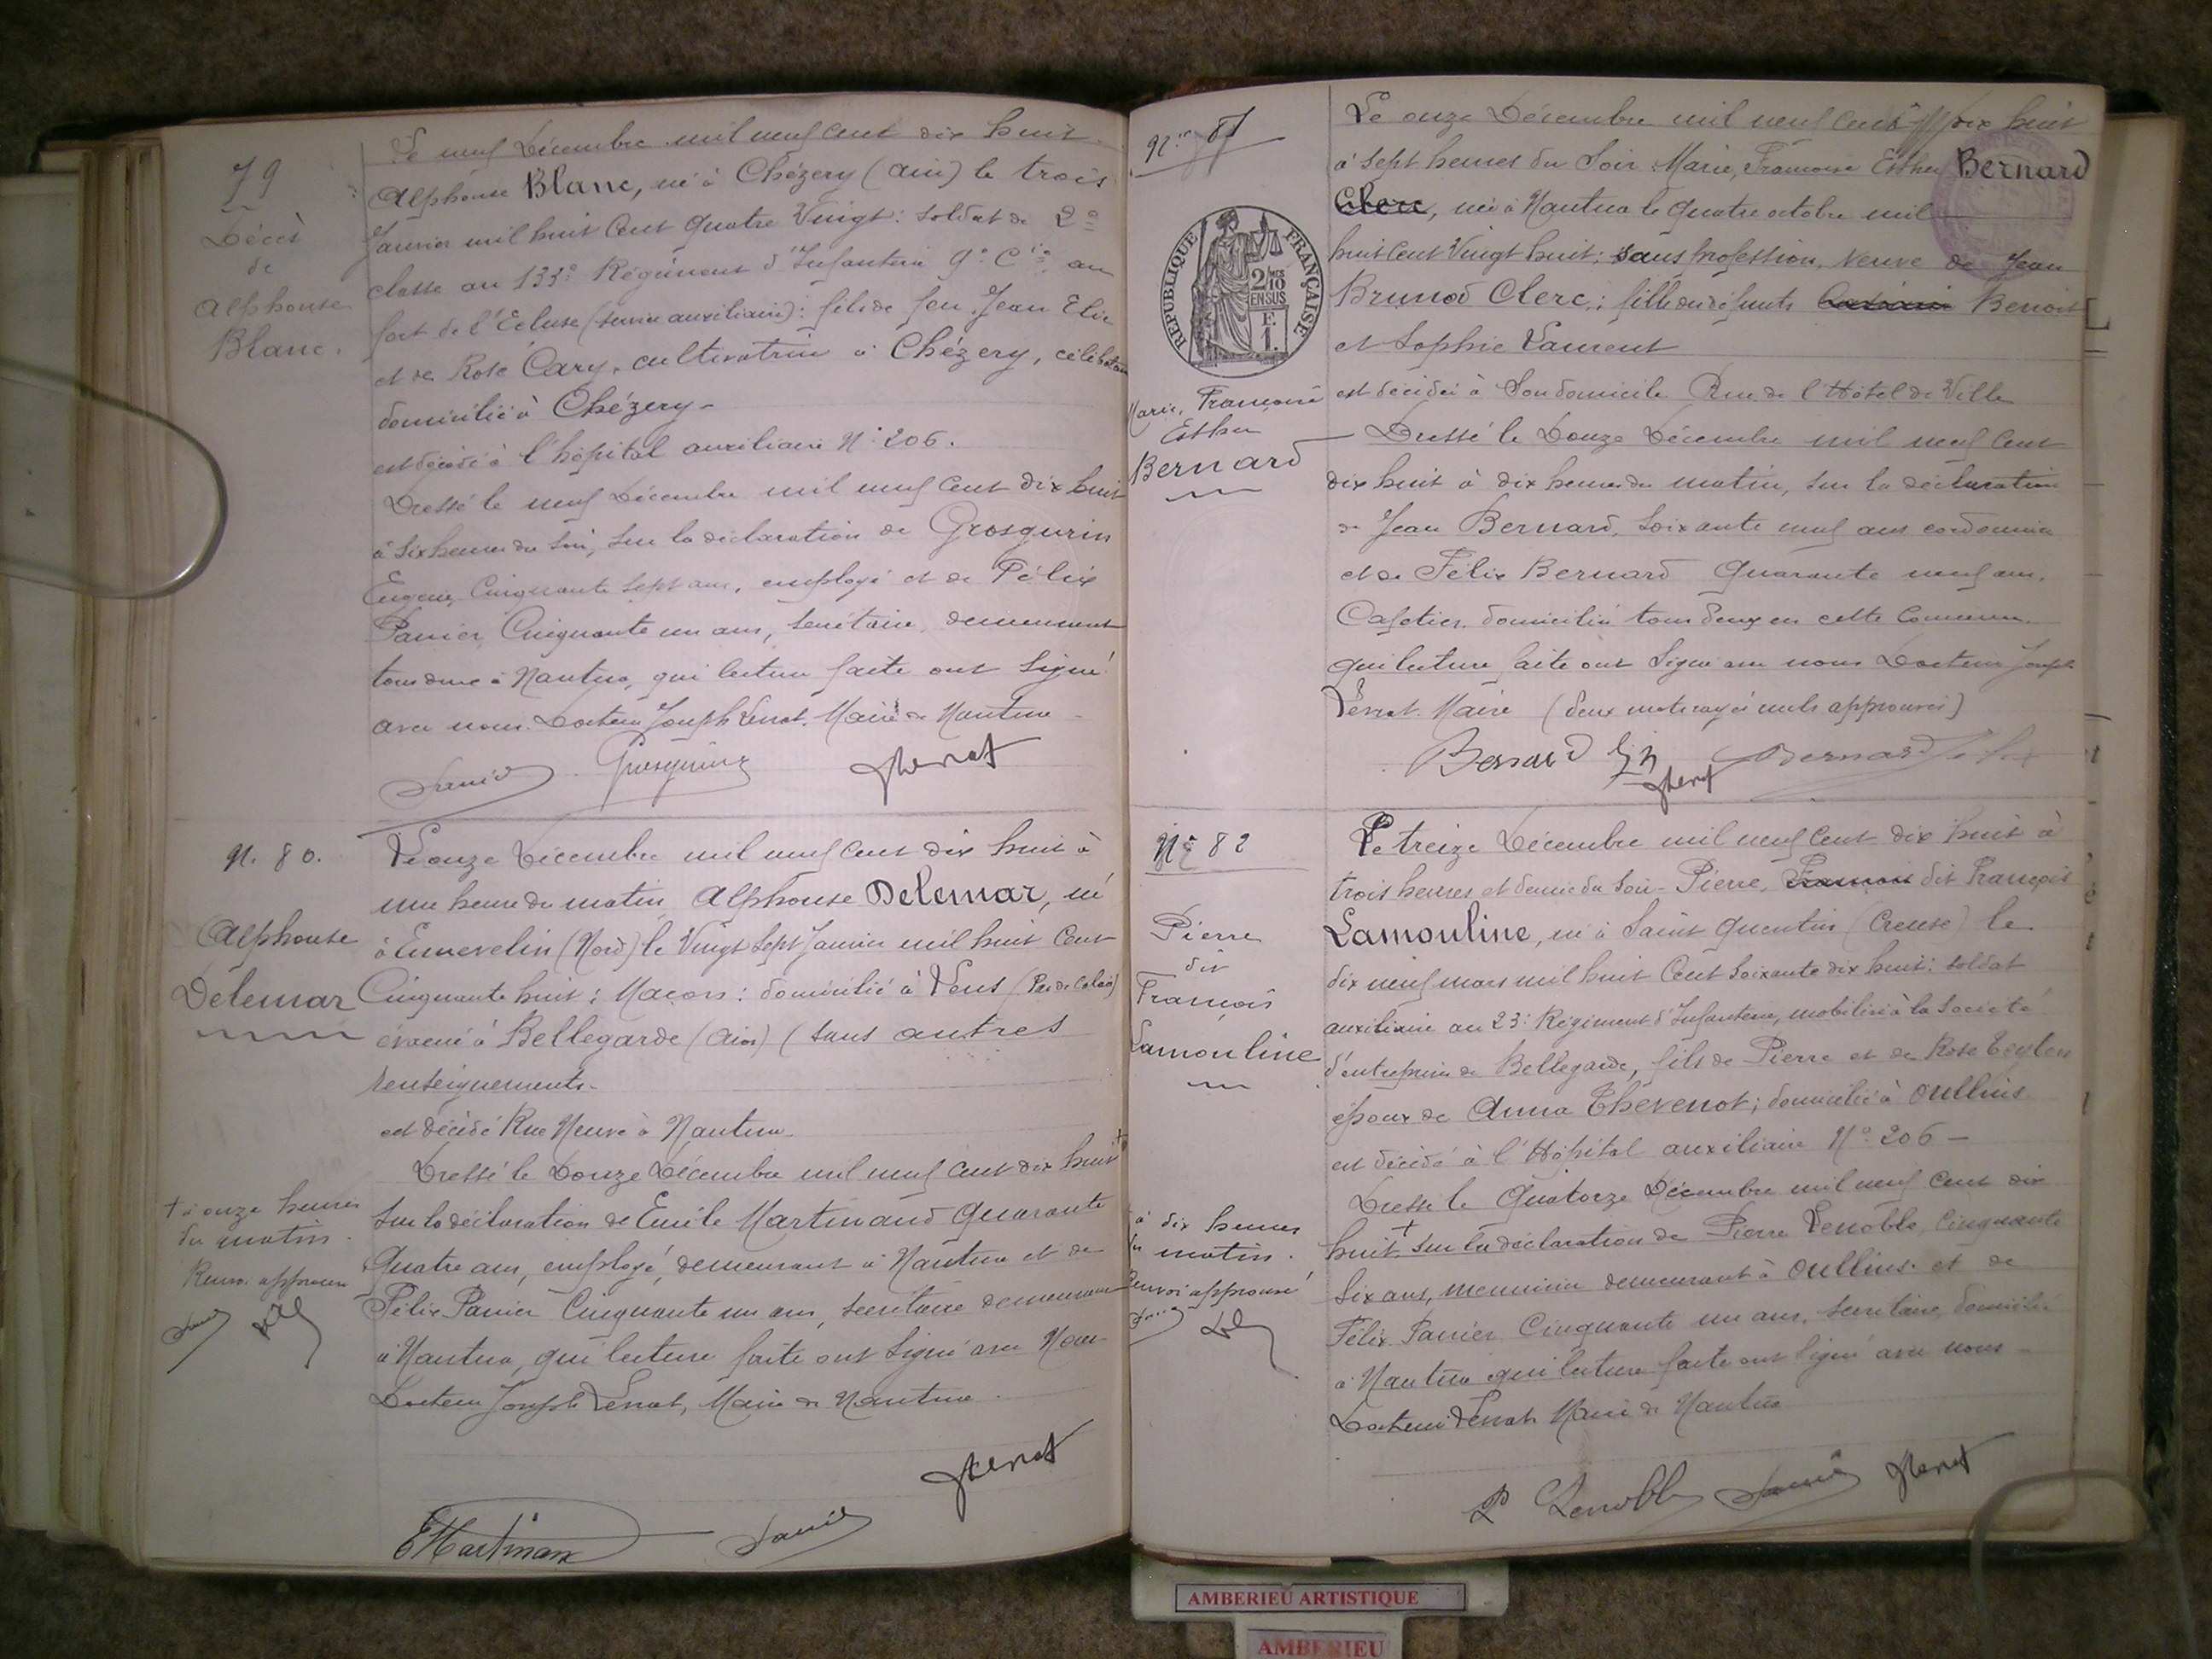 79
Décès
de
Alphonse
Blanc.
Le neuf Décembre mil neuf cent dix huit
Alphonse Blanc, né à Chézery (Ain) le trois
Janvier mil huit cent quatre Vingt : soldat de 2e
classe au 133e Régiment d'Infanterie 9e Cie au
fort de l'Ecluse (service auxiliaire) : fils de feu Jean Elie
et de Rose Cary, cultivatrice à Chézery, célibataire
domicilié à Chézery -
est décédé à l'hôpital auxiliaire N° 206.
Dressé le neuf Décembre mil neuf cent dix huit
à six heures du soir, sur la déclaration de Grosgurin
Eugène, Cinquante sept ans, employé et de Félix
Panier, Cinquante un ans, secrétaire, demeurant
tous deux à Nantua, qui lecture faite ont signé
avec nous Docteur Joseph Lenat, Maire de Nantua -
Panier Grosgurin JLenat
N. 80.
Alphonse
Delemar
Le onze Décembre mil neuf cent dix huit à
une heure du matin Alphonse Delemar, né
à Ennevelin (Nord) le Vingt sept Janvier mil huit cent
Cinquante huit : Maçon : domicilié à Lens (Pas de Calais)
évacué à Bellegarde (Ain) (sans autres
renseignements -
est décédé Rue Neuve à Nantua
Dressé le Douze Décembre mil neuf cent dix huit +
sur la déclaration de Emile Martinand Quarante
quatre ans, employé, demeurant à Nantua et de
Félix Panier Cinquante un ans, secrétaire demeurant
à Nantua, qui lecture faite ont signé avec Nous
Docteur Joseph Lenat, Maire de Nantua
+ à onze heures
du matin.
Renvoi approuvé
JLenat
EMartinand Panier
N° 81
REPUBLIQUE FRANÇAISE
2/10 EN SUS
F.
1.
Marie, Françoise
Esther
Bernard
Le onze Décembre mil neuf cent dix huit
à sept heures du Soir Marie, Françoise Esther Bernard
Clerc, née à Nantua le quatre octobre mil
huit cent Vingt huit : sans profession, Veuve de Jean
Brunod Clerc : fille de défunts Benoit
et Sophie Laurent
est décédée à son domicile Rue de l'Hôtel de Ville
Dressé le Douze Décembre mil neuf cent
dix huit à dix heures du matin, sur la déclaration
de Jean Bernard, soixante neuf ans cordonnier
et de Félix Bernard Quarante neuf ans,
Cafetier, domiciliés tous deux en cette Commune
qui lecture faite ont signé avec nous Docteur Joseph
Lenat Maire (deux mots rayés nuls approuvés)
Bernard JLenat Bernard Félix
N° 82
Pierre
dit
François
Lamouline
Le treize Décembre mil neuf cent dix huit à
trois heures et demie du Soir - Pierre, François dit François
Lamouline, né à Saint Quentin (Creuse) le
dix neuf mars mil huit cent soixante dix huit : soldat
auxiliaire au 23e Régiment d'Infanterie, mobilisé à la Société
d'entreprise de Bellegarde, fils de Pierre et de Rose
époux de Anna Thévenot ; domicilié à Oullins
est décédé à l'Hôpital auxiliaire N° 206 -
Dressé le Quatorze Décembre mil neuf cent dix
huit + sur la déclaration de Pierre Lenoble, cinquante
six ans, menuisier demeurant à Oullins et de
Félix Panier Cinquante un ans, secrétaire, domicilié
à Nantua qui lecture faite ont signé avec nous -
Docteur Lenat Maire de Nantua
à dix heures
du matin.
Renvoi approuvé
P Lenoble Panier JLenat
AMBERIEU ARTISTIQUE
AMBERIEU